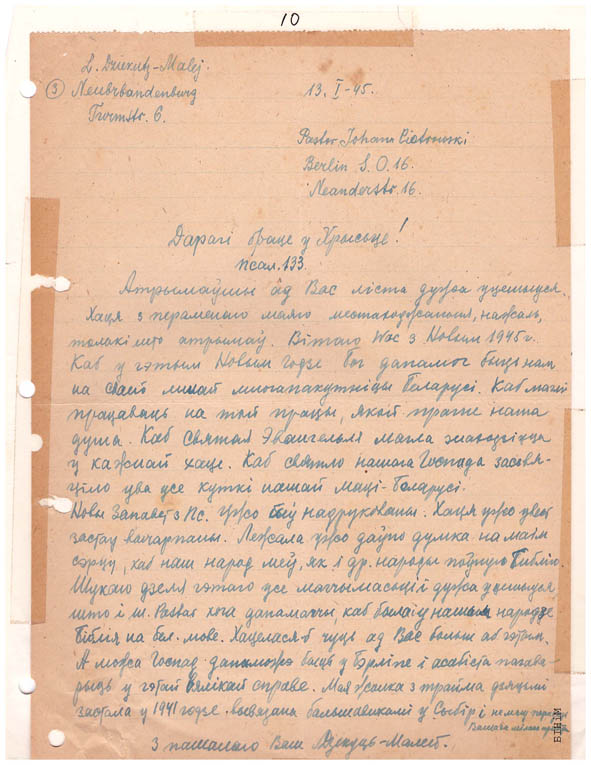 10
L. Dziekuć-Malej.
3 Neubrbandenburg
Turmstr. 6.
13. I-45.
Pastor Johann Piotrowski
Berlin S. O. 16.
Neanderstr. 16.
Дарагі браце у Хрысьце!
Псал. 133.
Атрымаўшы ад Вас ліста дужа уцешыуся.
Хаця з перамена маяго местанаходжаньня, нажаль,
толькі што атрымаў. Вітаю Вас з Новым 1945 г.
Каб у гэтым Новым Годзе Бог дапамог быць нам
на сваей мілай многапакутніцы Беларусі. Каб маглі
працаваць на той працы, якой прагне наша
душа. Каб Святая Эвангельля магла знаходзіцца
у кажнай хаце. Каб святло нашага Госпада засвя-
ціло ува усе куткі нашай Маці-Беларусі.
Новы Запавет з Пс. ужо быў надрукованы. Хаця ужо увесь
застау вычарпаны. Лежала ужо даўно думка на маім
сэрцу, каб наш народ меў, як і др. народы поўную Біблію.
Шукаю дзеля гэтаго усе магчымасьці і дужа уцешыуся
што і ш. Pastor хоча дапамагчы, каб была і у нашым народзе
Біблія на бел. мове. Хацелася-б чуць ад Вас больш аб гэтым.
А можа Госпад даможа быць у Бэрліне і асабіста пагава-
рыць у гэтай вялікай справе. Мая жонка з трайма дзяцьмі
застала у 1941 годзе вывязана бальшавікамі у Сыбір і
З пашанаю Ваш Дзекуць-Малей.
БІНіМ